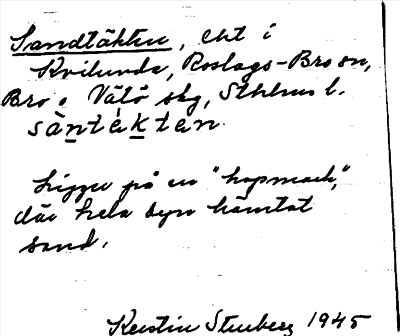 Sandtäkten, ekt i
Kvilunda, Roslags-Bro sn,
Bro o. Vätö skg, Sthlms l.
sàntékten
Ligger på en "hopmark,"
där hela byn hämtat
sand.
Kerstin 1945